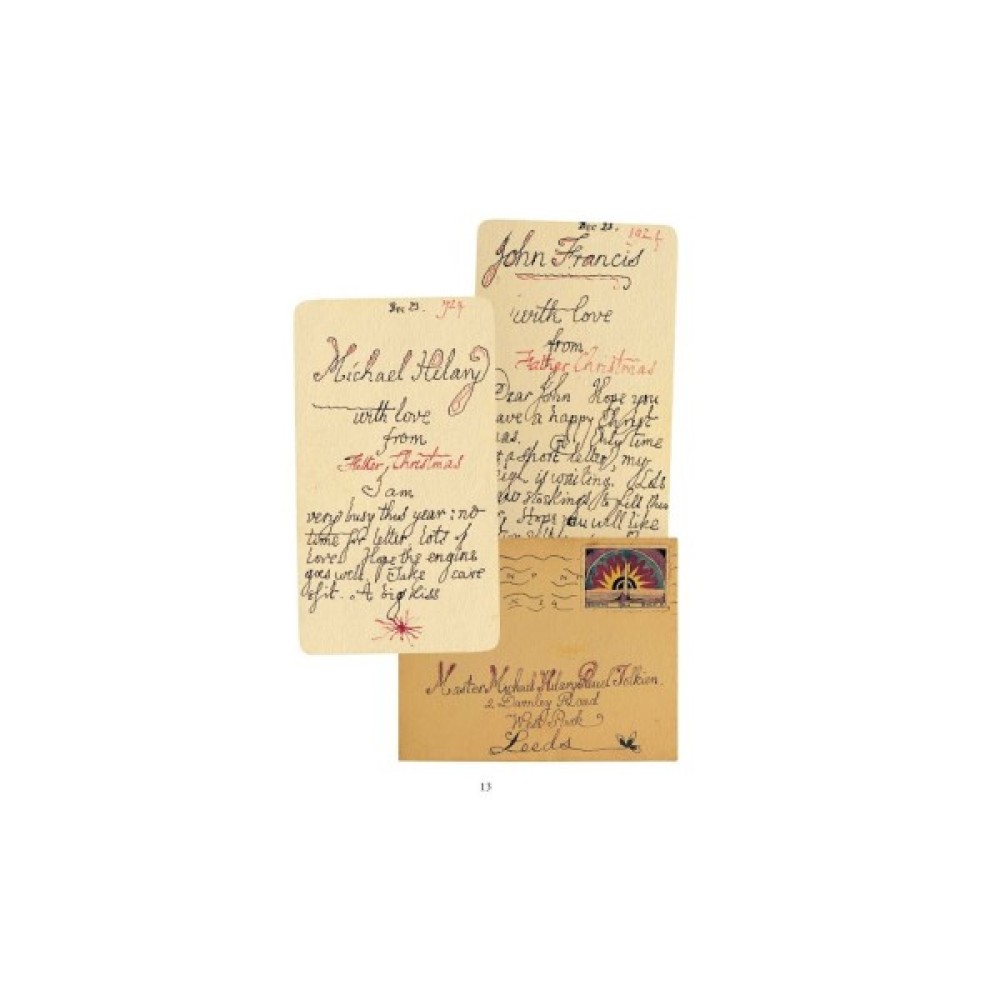 Dec 23. 1924
Michael Hilary
with love
from
Father Christmas
I am
very busy this year: no
time for letter. Lots of
love. Hope the engine
goes well. Take care
of it. A big kiss
Dec 23. 1924
John Francis
with love
from
Father Christmas
Dear John Hope you
ave a happy Christ
as. Only time
a short letter, my
is waiting. Lots
stockings to fill this
Hope you will like
Master Michael Hilary Reuel Tolkien
2 Darnley Road
West Park
Leeds
13